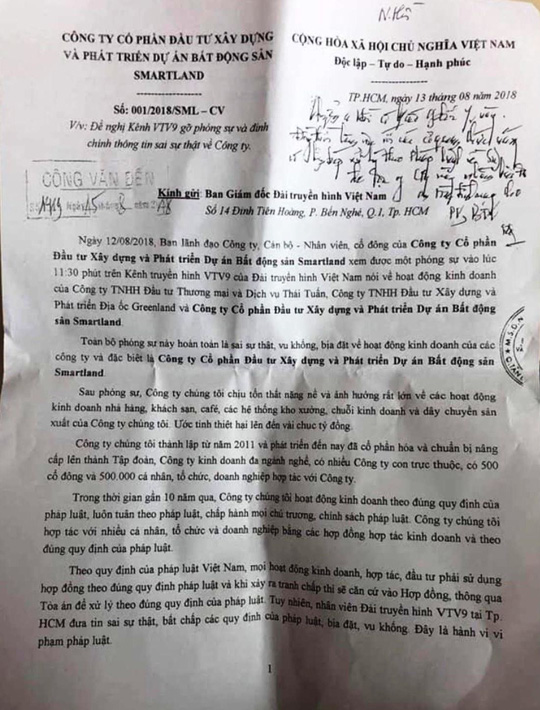 N.Hà
CÔNG TY CỔ PHẦN ĐẦU TƯ XÂY DỰNG
VÀ PHÁT TRIỂN DỰ ÁN BẤT ĐỘNG SẢN
SMARTLAND
CỘNG HÒA XÃ HỘI CHỦ NGHĨA VIỆT NAM
Độc lập – Tự do – Hạnh phúc
Số: 001/2018/SML – CV
TP.HCM, ngày 13 tháng 08 năm 2018
V/v: Đề nghị Kênh VTV9 gỡ phóng sự và đính
chính thông tin sai sự thật về Công ty.
CÔNG VĂN ĐẾN
Kính gửi: Ban Giám đốc Đài truyền hình Việt Nam
Số 14 Đinh Tiên Hoàng, P. Bến Nghé, Q.1, Tp. HCM
Ngày 12/08/2018, Ban lãnh đạo Công ty, Cán bộ - Nhân viên, cổ đông của Công ty Cổ phần
Đầu tư Xây dựng và Phát triển Dự án Bất động sản Smartland xem được một phóng sự vào lúc
11:30 phút trên Kênh truyền hình VTV9 của Đài truyền hình Việt Nam nói về hoạt động kinh doanh
của Công ty TNHH Đầu tư Thương mại và Dịch vụ Thái Tuấn, Công ty TNHH Đầu tư Xây dựng và
Phát triển Địa ốc Greenland và Công ty Cổ phần Đầu tư Xây dựng và Phát triển Dự án Bất động
sản Smartland.
Toàn bộ phóng sự này hoàn toàn là sai sự thật, vu khống, bịa đặt về hoạt động kinh doanh của các
công ty và đặc biệt là Công ty Cổ phần Đầu tư Xây dựng và Phát triển Dự án Bất động sản
Smartland.
Sau phóng sự, Công ty chúng tôi chịu tổn thất nặng nề và ảnh hưởng rất lớn về các hoạt động
kinh doanh nhà hàng, khách sạn, café, các hệ thống kho xưởng, chuỗi kinh doanh và dây chuyền sản
xuất của Công ty chúng tôi. Ước tính thiệt hại lên đến vài chục tỷ đồng.
Công ty chúng tôi thành lập từ năm 2011 và phát triển đến nay đã cổ phần hóa và chuẩn bị nâng
cấp lên thành Tập đoàn, Công ty kinh doanh đa ngành nghề, có nhiều Công ty con trực thuộc, có 500
cổ đông và 500.000 cá nhân, tổ chức, doanh nghiệp hợp tác với Công ty.
Trong thời gian gần 10 năm qua, Công ty chúng tôi hoạt động kinh doanh theo đúng quy định của
pháp luật, luôn tuân theo pháp luật, chấp hành mọi chủ trương, chính sách pháp luật. Công ty chúng tôi
hợp tác với nhiều cá nhân, tổ chức và doanh nghiệp bằng các hợp đồng hợp tác kinh doanh và theo
đúng quy định của pháp luật.
Theo quy định của pháp luật Việt Nam, mọi hoạt động kinh doanh, hợp tác, đầu tư phải sử dụng
hợp đồng theo đúng quy định pháp luật và khi xảy ra tranh chấp thì sẽ căn cứ vào Hợp đồng, thông qua
Tòa án để xử lý theo đúng quy định của pháp luật. Tuy nhiên, nhân viên Đài truyền hình VTV9 tại Tp.
HCM đưa tin sai sự thật, bất chấp các quy định của pháp luật, bịa đặt, vu khống. Đây là hành vi vi
phạm pháp luật.
1